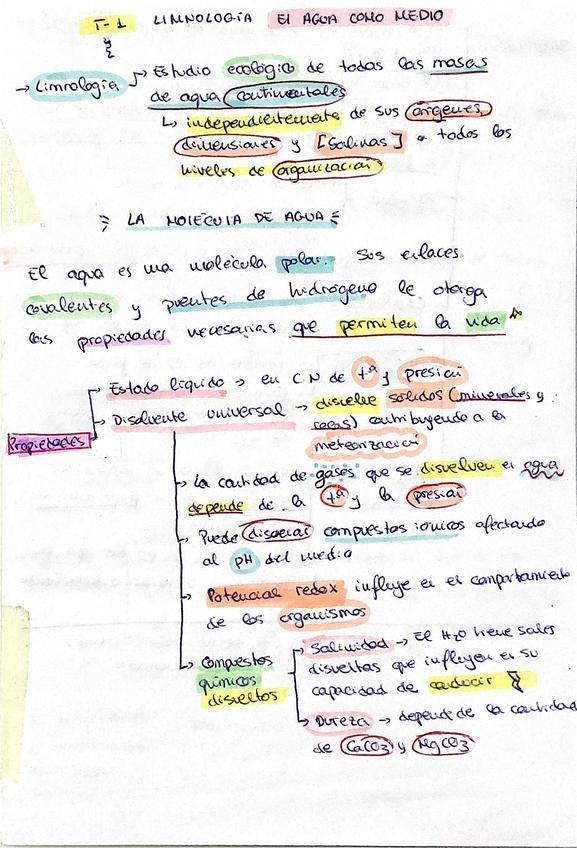 T-1 LIMNOLOGÍA El AGUA COMO MEDIO
→ Limnología → Estudio ecológico de todas las masas
de agua continentales
↳ independientemente de sus órigenes,
dimensiones y [Salinas] a todos los
niveles de organización
LA MOLÉCULA DE AGUA
El agua es una molécula polar. Sus enlaces
covalentes y puentes de hidrógeno le otorga
las propiedades necesarias que permiten la vida
Propiedades
→ Estado líquido → en C.N de tª y presión
→ Disolvente universal → disuelve sólidos (minerales y
rocas) contribuyendo a la
meteorización
→ La cantidad de gases que se disuelven en agua
depende de la tª y la presión
→ Puede disociar compuestos iónicos afectando
al pH del medio
→ Potencial redox influye en el comportamiento
de los organismos
→ Compuestos químicos disueltos
→ Salinidad → El H2O tiene sales
disueltas que influyen en su
capacidad de conducir
→ Dureza → depende de la cantidad
de CaCO3 y MgCO3